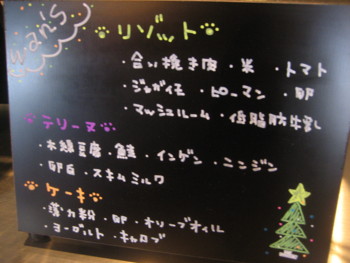 wan's
リゾット
・合い挽き肉・米・トマト
・ジャガイモ・ピーマン・卵
・マッシュルーム・低脂肪牛乳
テリーヌ
・木綿豆腐・鮭・インゲン・ニンジン
・卵白・スキムミルク
ケーキ
・薄力粉・卵・オリーブオイル
・ヨーグルト・キャロブ